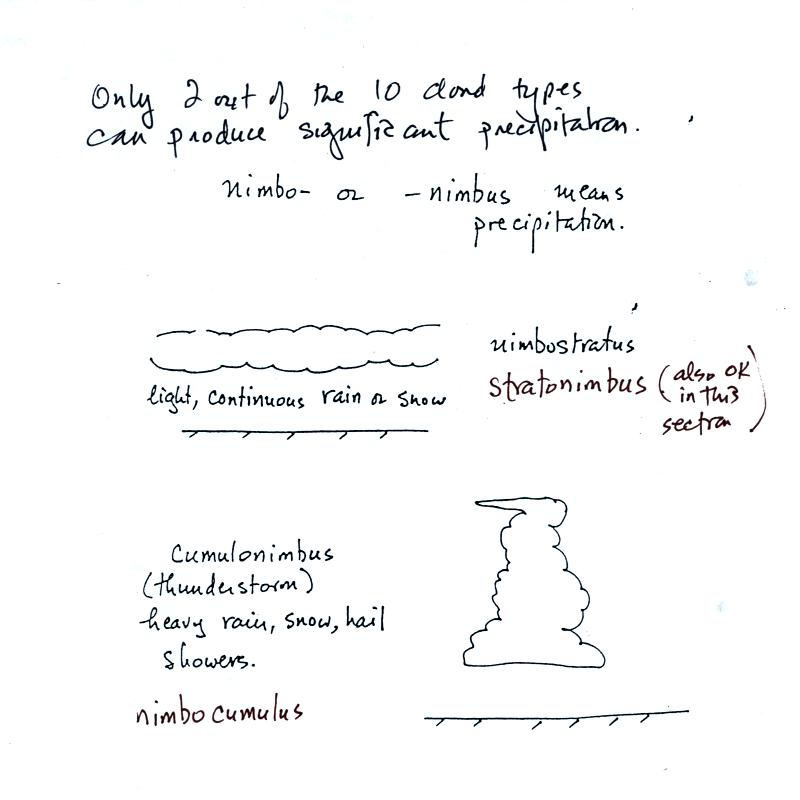 Only 2 out of the 10 cloud types
can produce significant precipitation.
nimbo- or -nimbus means
precipitation.
nimbostratus
stratonimbus (also OK
in this
section)
light, continuous rain or snow
Cumulonimbus
(thunderstorm)
heavy rain, snow, hail
showers.
nimbocumulus